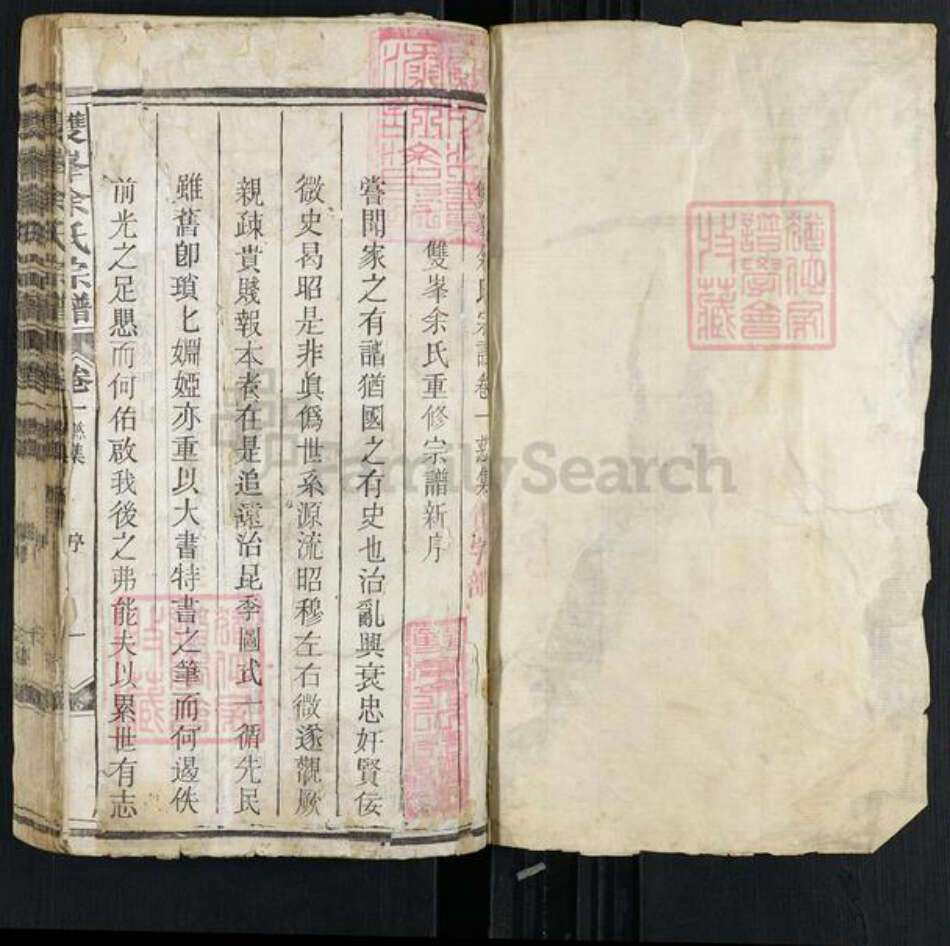 雙峯余氏宗譜卷一
雙峯余氏重修宗譜新序
嘗聞家之有譜猶國之有史也治亂興衰忠奸賢佞
微史曷昭是非眞僞世系源流昭穆左右微遂觀厥
親疎貴賤報本者在是追遠治昆季圖式一循先民
雖舊卽瑣匕婣婭亦重以大書特書之筆而何遏佚
前光之足懸而何佑啟我後之弗能夫以累世有志
雙峯余氏宗譜
卷一
序
一
FamilySearch